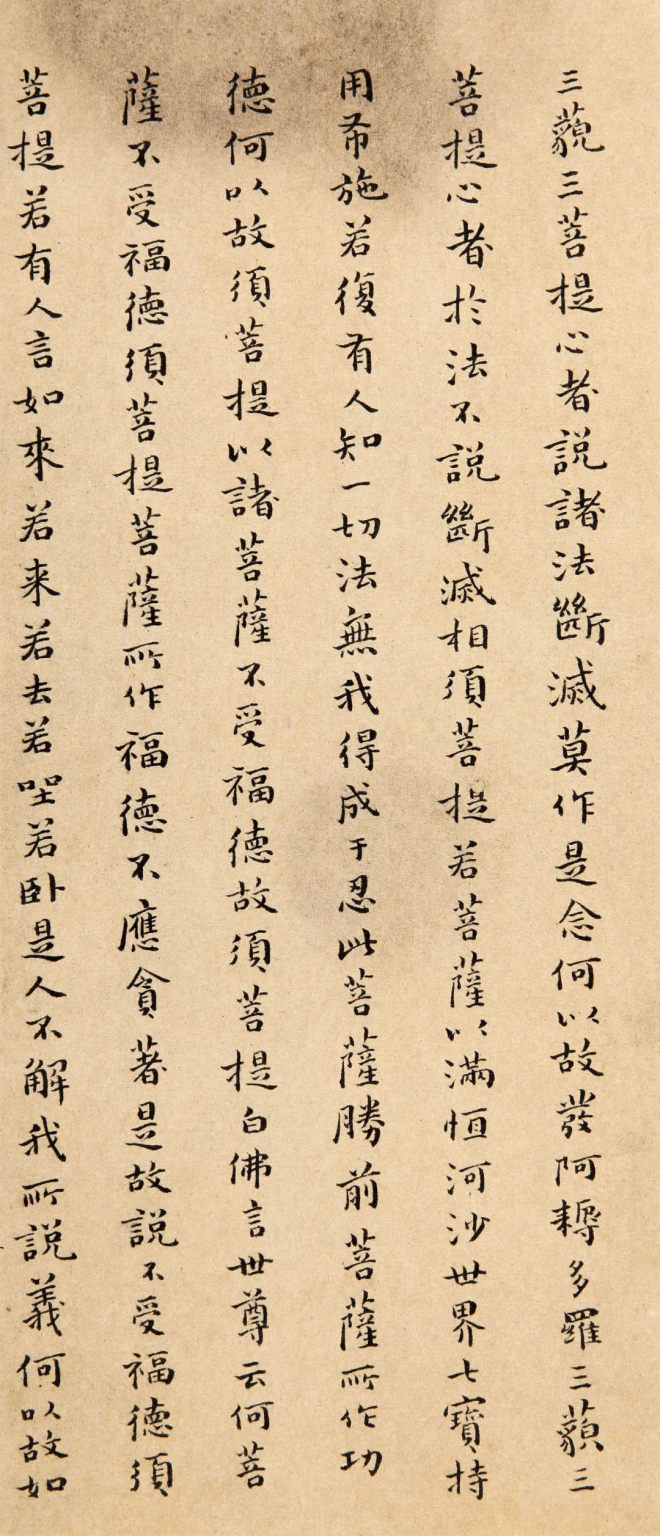 三藐三菩提心者説諸法斷滅莫作是念何以故發阿耨多羅三藐三
菩提心者於法不説斷滅相須菩提若菩薩以滿恒河沙世界七寶持
用布施若復有人知一切法無我得成于忍此菩薩勝前菩薩所作功
德何以故須菩提以諸菩薩不受福德故須菩提白佛言世尊云何菩
薩不受福德須菩提菩薩所作福德不應貪著是故説不受福德須
菩提若有人言如來若来若去若坐若卧是人不解我所説義何以故如